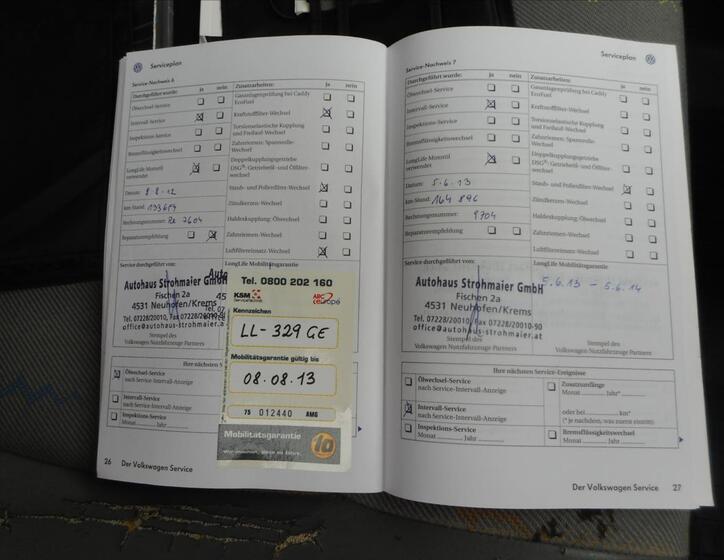 Serviceplan
Service-Nachweis 6
Durchgeführt wurde: ja nein
Ölwechsel-Service
Intervall-Service
Inspektions-Service
Bremsflüssigkeitswechsel
LongLife Motoröl
verwendet
Datum: 8.8.12
km-Stand: 133619
Rechnungsnummer: Re 7604
Reparaturempfehlung
Zusatzarbeiten: ja nein
Gasanlagenprüfung bei Caddy
EcoFuel
Kraftstofffilter-Wechsel
Torsionselastische Kupplung
und Freilauf-Wechsel
Zahnriemen- Spannrolle-
Wechsel
Doppelkupplungsgetriebe
DSG®: Getriebeöl- und Ölfilter-
wechsel
Staub- und Pollenfilter-Wechsel
Zündkerzen-Wechsel
Haldexkupplung: Ölwechsel
Zahnriemen-Wechsel
Luftfiltereinsatz-Wechsel
Service durchgeführt von:
Autohaus Strohmaier GmbH
Fischen 2a
4531 Neuhofen/Krems
Tel. 07228/20010, Fax 07228/
office@autohaus-strohmaier.a
Stempel des
Volkswagen Nutzfahrzeuge Partners
LongLife Mobilitätsgarantie
Tel. 0800 202 160
KSM
ARC
europe
Kennzeichen
LL-329 GE
Mobilitätsgarantie gültig bis
08.08.13
75 012440 AMG
Mobilitätsgarantie
10
Ihre nächsten S
Ölwechsel-Service
nach Service-Intervall-Anzeige
Intervall-Service
nach Service-Intervall-Anzeige
Inspektions-Service
Monat Jahr
26 Der Volkswagen Service
Serviceplan
Service-Nachweis 7
Durchgeführt wurde: ja nein
Ölwechsel-Service
Intervall-Service
Inspektions-Service
Bremsflüssigkeitswechsel
LongLife Motoröl
verwendet
Datum: 5.6.13
km-Stand: 164 896
Rechnungsnummer: 8704
Reparaturempfehlung
Zusatzarbeiten: ja nein
Gasanlagenprüfung bei Caddy
EcoFuel
Kraftstofffilter-Wechsel
Torsionselastische Kupplung
und Freilauf-Wechsel
Zahnriemen- Spannrolle-
Wechsel
Doppelkupplungsgetriebe
DSG®: Getriebeöl- und Ölfilter-
wechsel
Staub- und Pollenfilter-Wechsel
Zündkerzen-Wechsel
Haldexkupplung: Ölwechsel
Zahnriemen-Wechsel
Luftfiltereinsatz-Wechsel
Service durchgeführt von:
Autohaus Strohmaier GmbH
Fischen 2a
4531 Neuhofen/Krems
Tel. 07228/20010, Fax 07228/20010-90
office@autohaus-strohmaier.at
Stempel des
Volkswagen Nutzfahrzeuge Partners
LongLife Mobilitätsgarantie
5.6.13 - 5.6.14
Ihre nächsten Service-Ereignisse
Ölwechsel-Service
nach Service-Intervall-Anzeige
Intervall-Service
nach Service-Intervall-Anzeige
Inspektions-Service
Monat Jahr
Zusatzumfänge
Monat Jahr*
oder bei km*
(* je nachdem, was zuerst eintritt)
Bremsflüssigkeitswechsel
Monat Jahr
Der Volkswagen Service 27